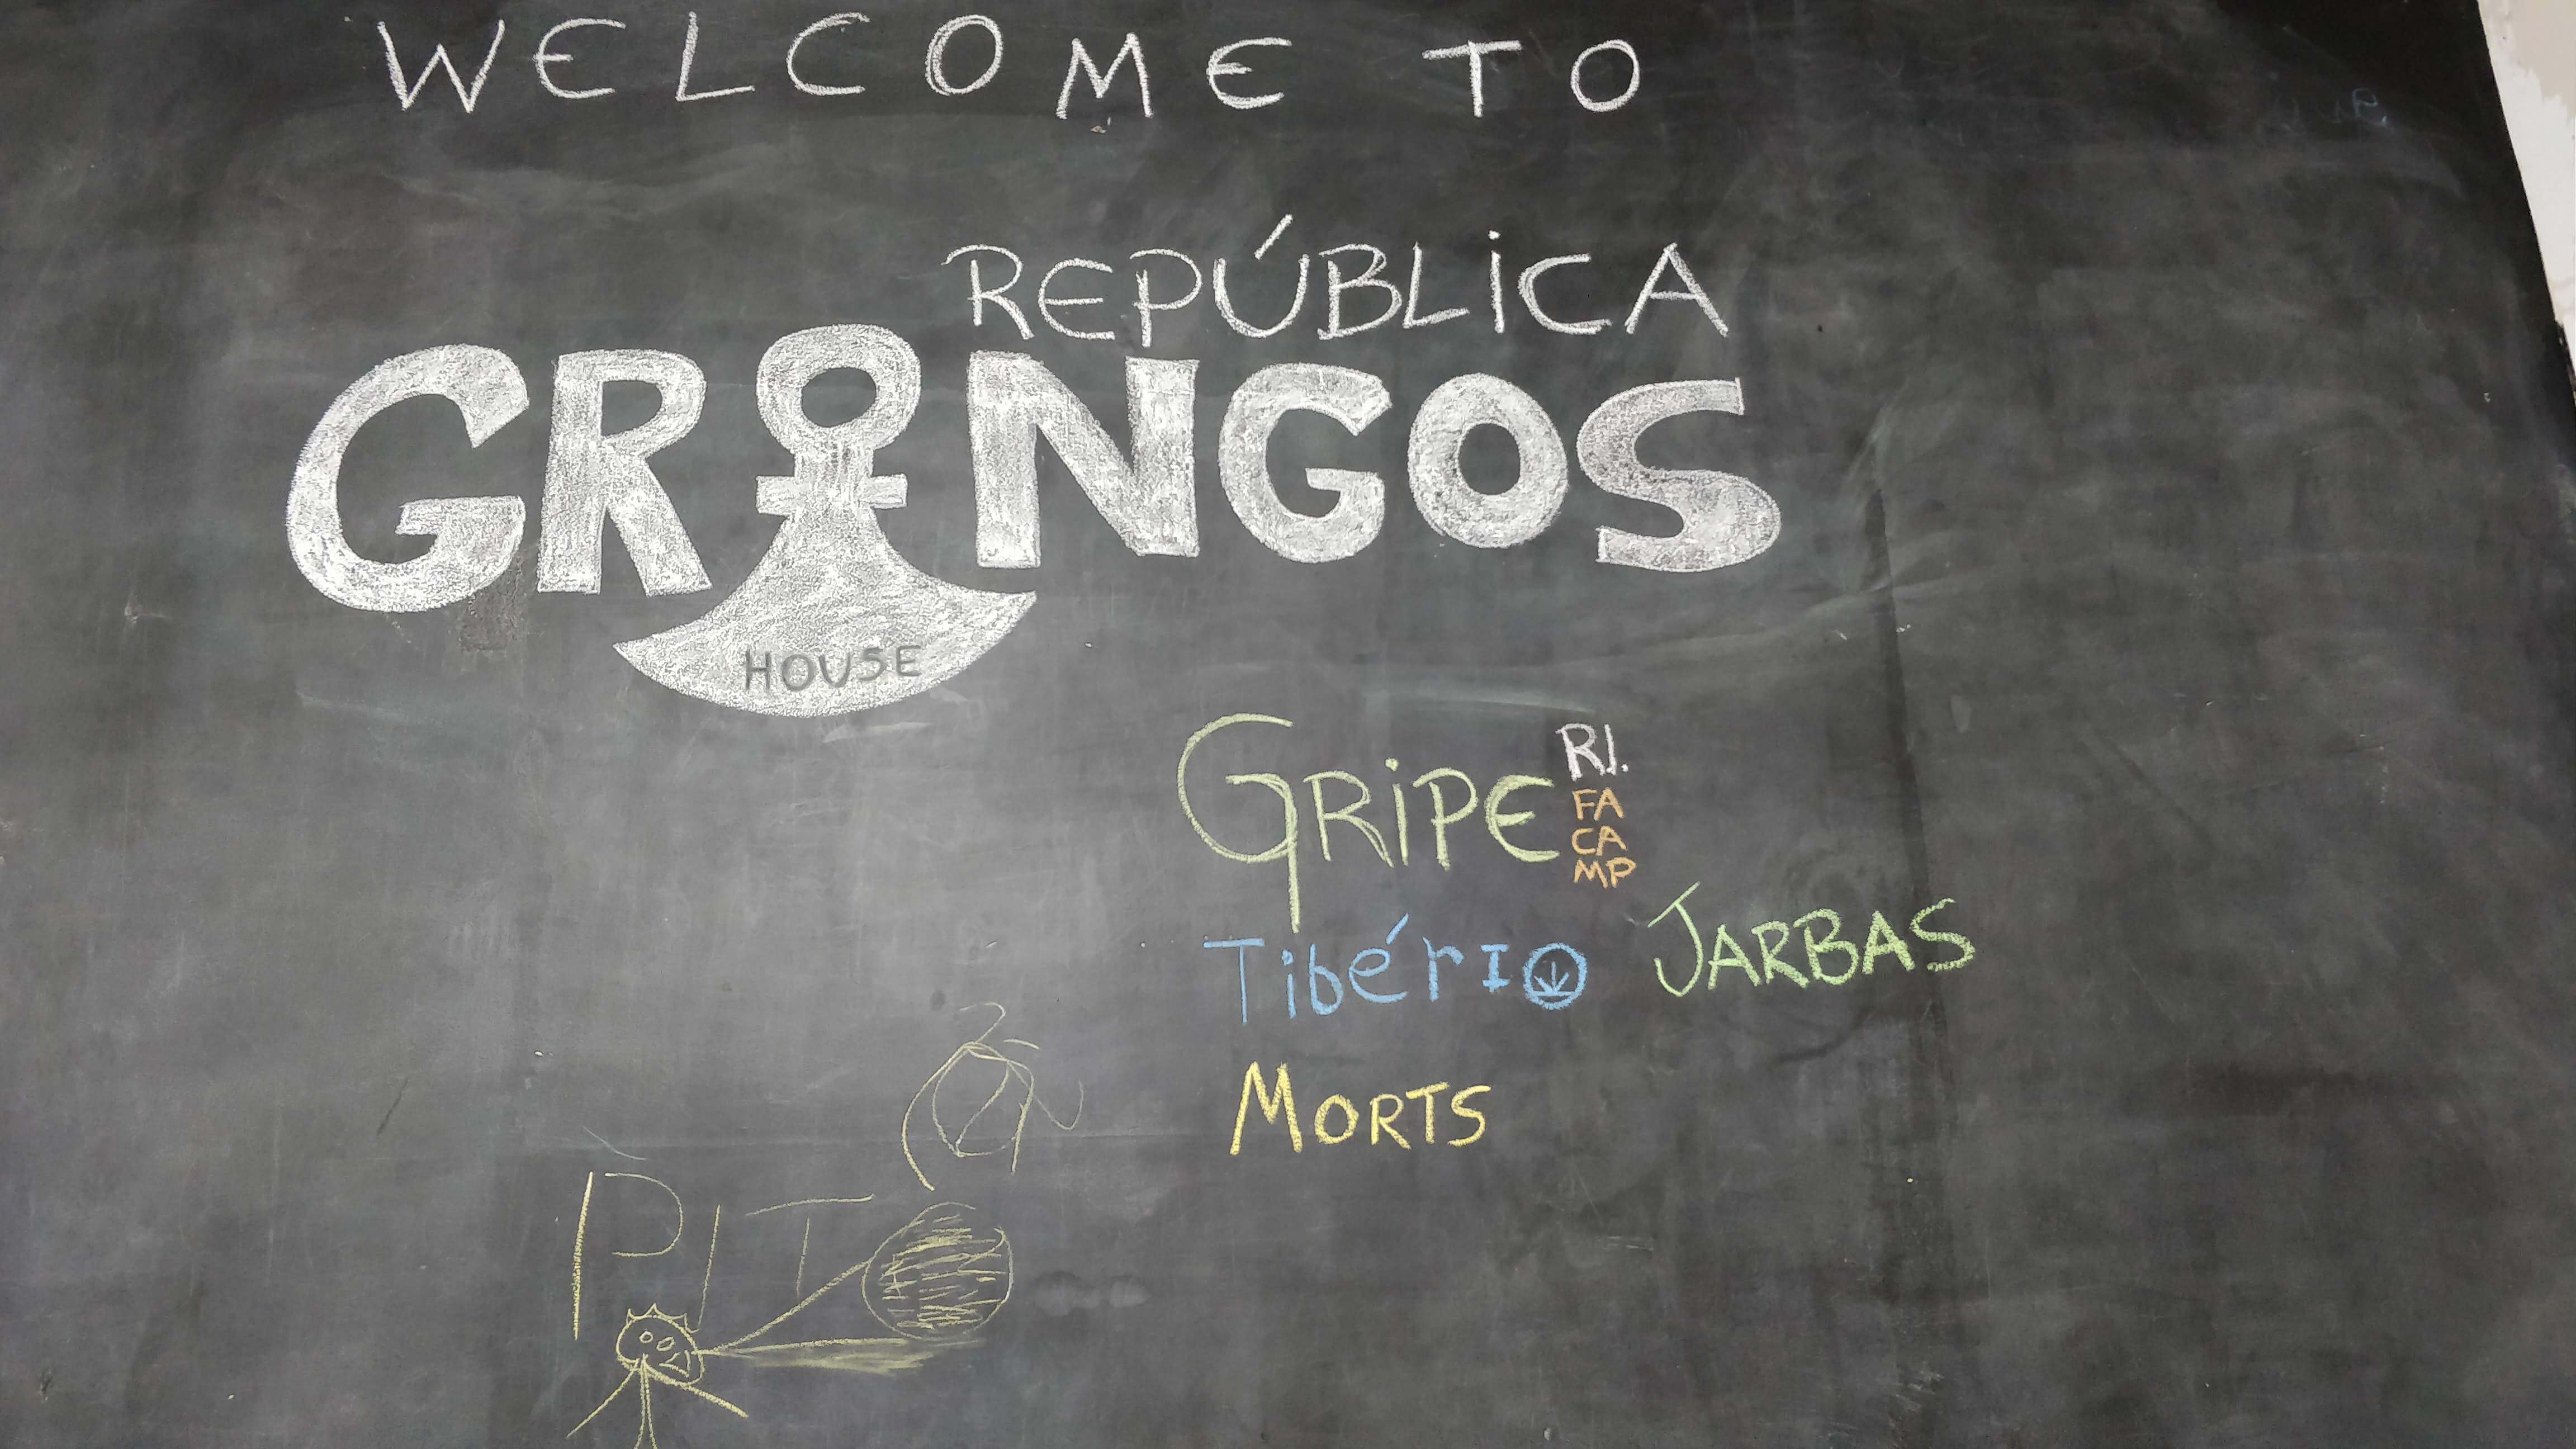 WELCOME TO
REPÚBLICA
GRINGOS
HOUSE
GRIPE
RI.
FA
CA
MP
TibérIO
JARBAS
MORTS
PIT